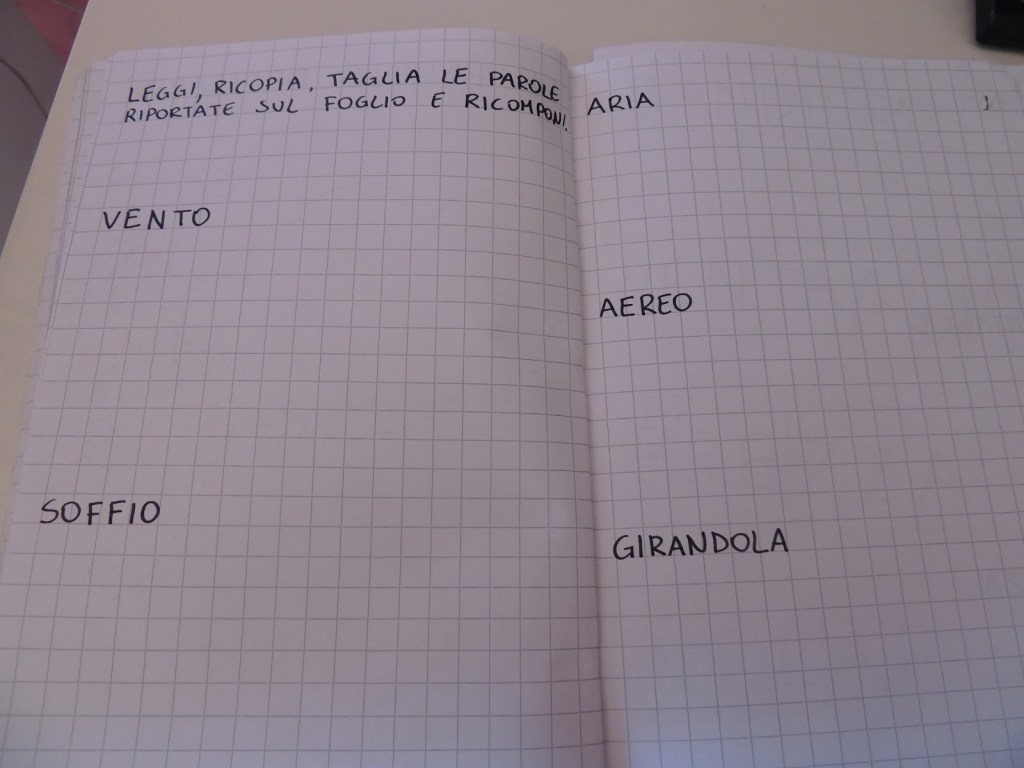 LEGGI, RICOPIA, TAGLIA LE PAROLE
RIPORTATE SUL FOGLIO E RICOMPONI.
VENTO
SOFFIO
ARIA
AEREO
GIRANDOLA